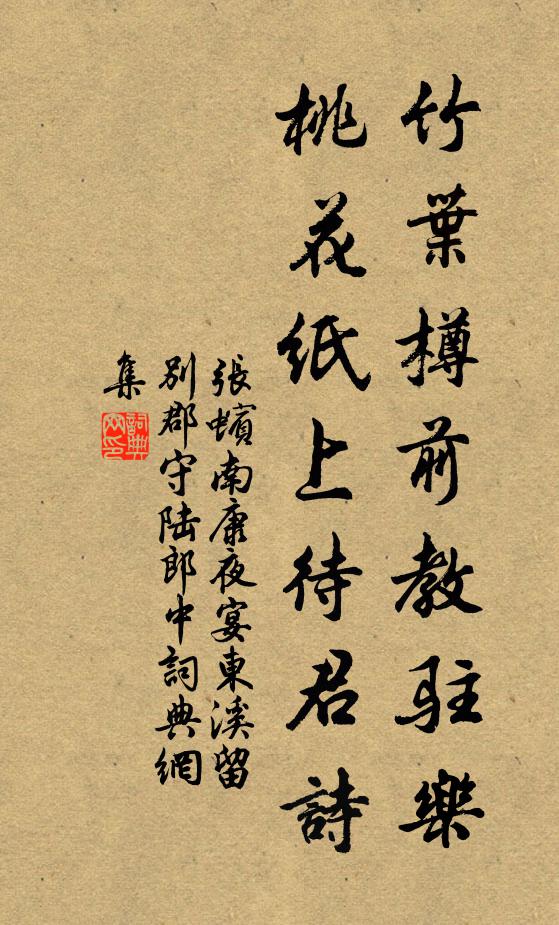 竹葉樽前教駐樂
桃花紙上待君詩
張蠙南康夜宴東溪留
別郡守陸郎中詞典網
集
詞典
网印